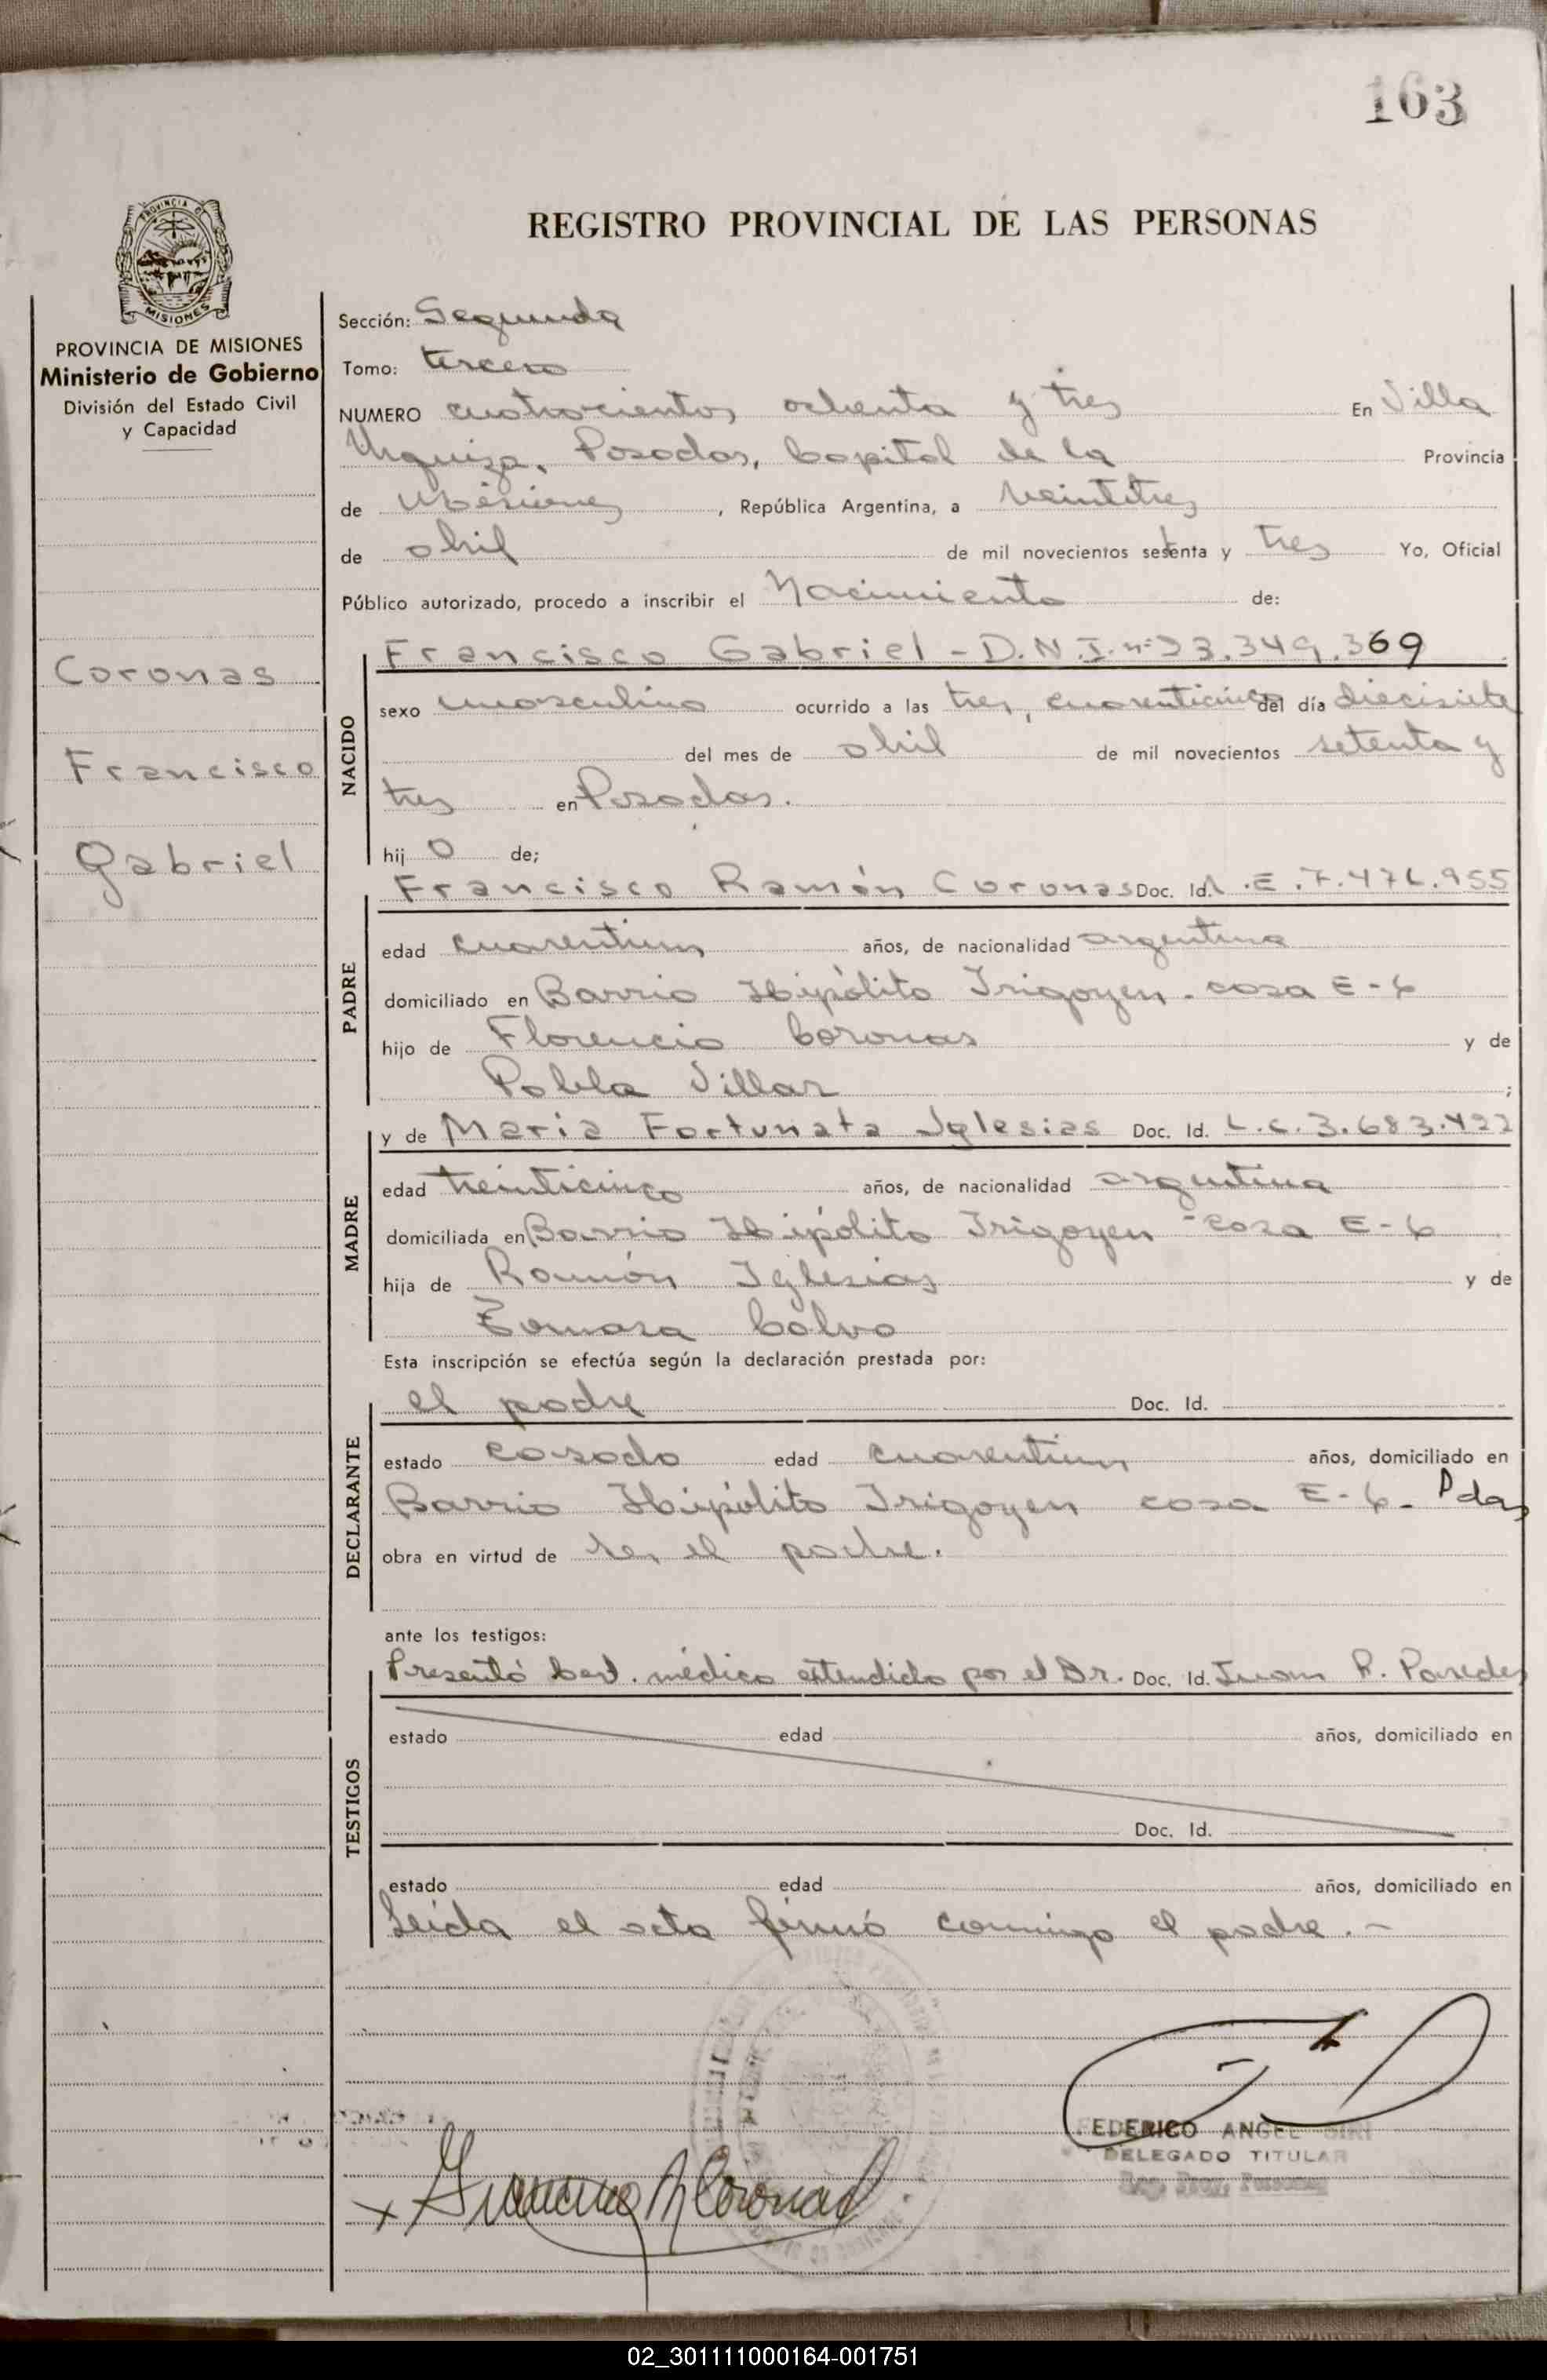 163
PROVINCIA D
MISIONES
PROVINCIA DE MISIONES
Ministerio de Gobierno
División del Estado Civil
y Capacidad
Coronas
Francisco
Gabriel
REGISTRO PROVINCIAL DE LAS PERSONAS
Sección: Segunda
Tomo: tercero
NUMERO cuatrocientos ochenta y tres En Villa
Urquiza, Posadas, Capital de la Provincia
de Misiones, República Argentina, a veintitres
de abril de mil novecientos setenta y tres Yo, Oficial
Público autorizado, procedo a inscribir el Nacimiento de:
NACIDO
Francisco Gabriel - D.N.I. nº 23.349.369
sexo masculino ocurrido a las tres, cuarenticinco del día diecisiete
del mes de abril de mil novecientos setenta y
tres en Posadas.
hij o de;
PADRE
Francisco Ramón Coronas Doc. Id. .E.7.476.955
edad cuarentiun años, de nacionalidad argentina
domiciliado en Barrio Hipólito Irigoyen - casa E-6
hijo de Florencio Coronas y de
Pabla Villar ;
MADRE
y de Maria Fortunata Iglesias Doc. Id. L.C. 3.683.422
edad treinticinco años, de nacionalidad argentina
domiciliada en Barrio Hipólito Irigoyen - casa E-6
hija de Ramón Iglesias y de
Tomasa Calvo
Esta inscripción se efectúa según la declaración prestada por:
DECLARANTE
el padre Doc. Id.
estado casado edad cuarentiun años, domiciliado en
Barrio Hipólito Irigoyen casa E-6- Pdas
obra en virtud de ser el padre.
ante los testigos:
TESTIGOS
Presentó Cert. médico extendido por el Dr. Doc. Id. Juan R. Paredes
estado edad años, domiciliado en
Doc. Id.
estado edad años, domiciliado en
Leída el acta firmó conmigo el padre. -
FEDERICO ANGEL
DELEGADO TITULAR
Reg. Prov. Personas
x Francisco R Coronas
02_301111000164-001751